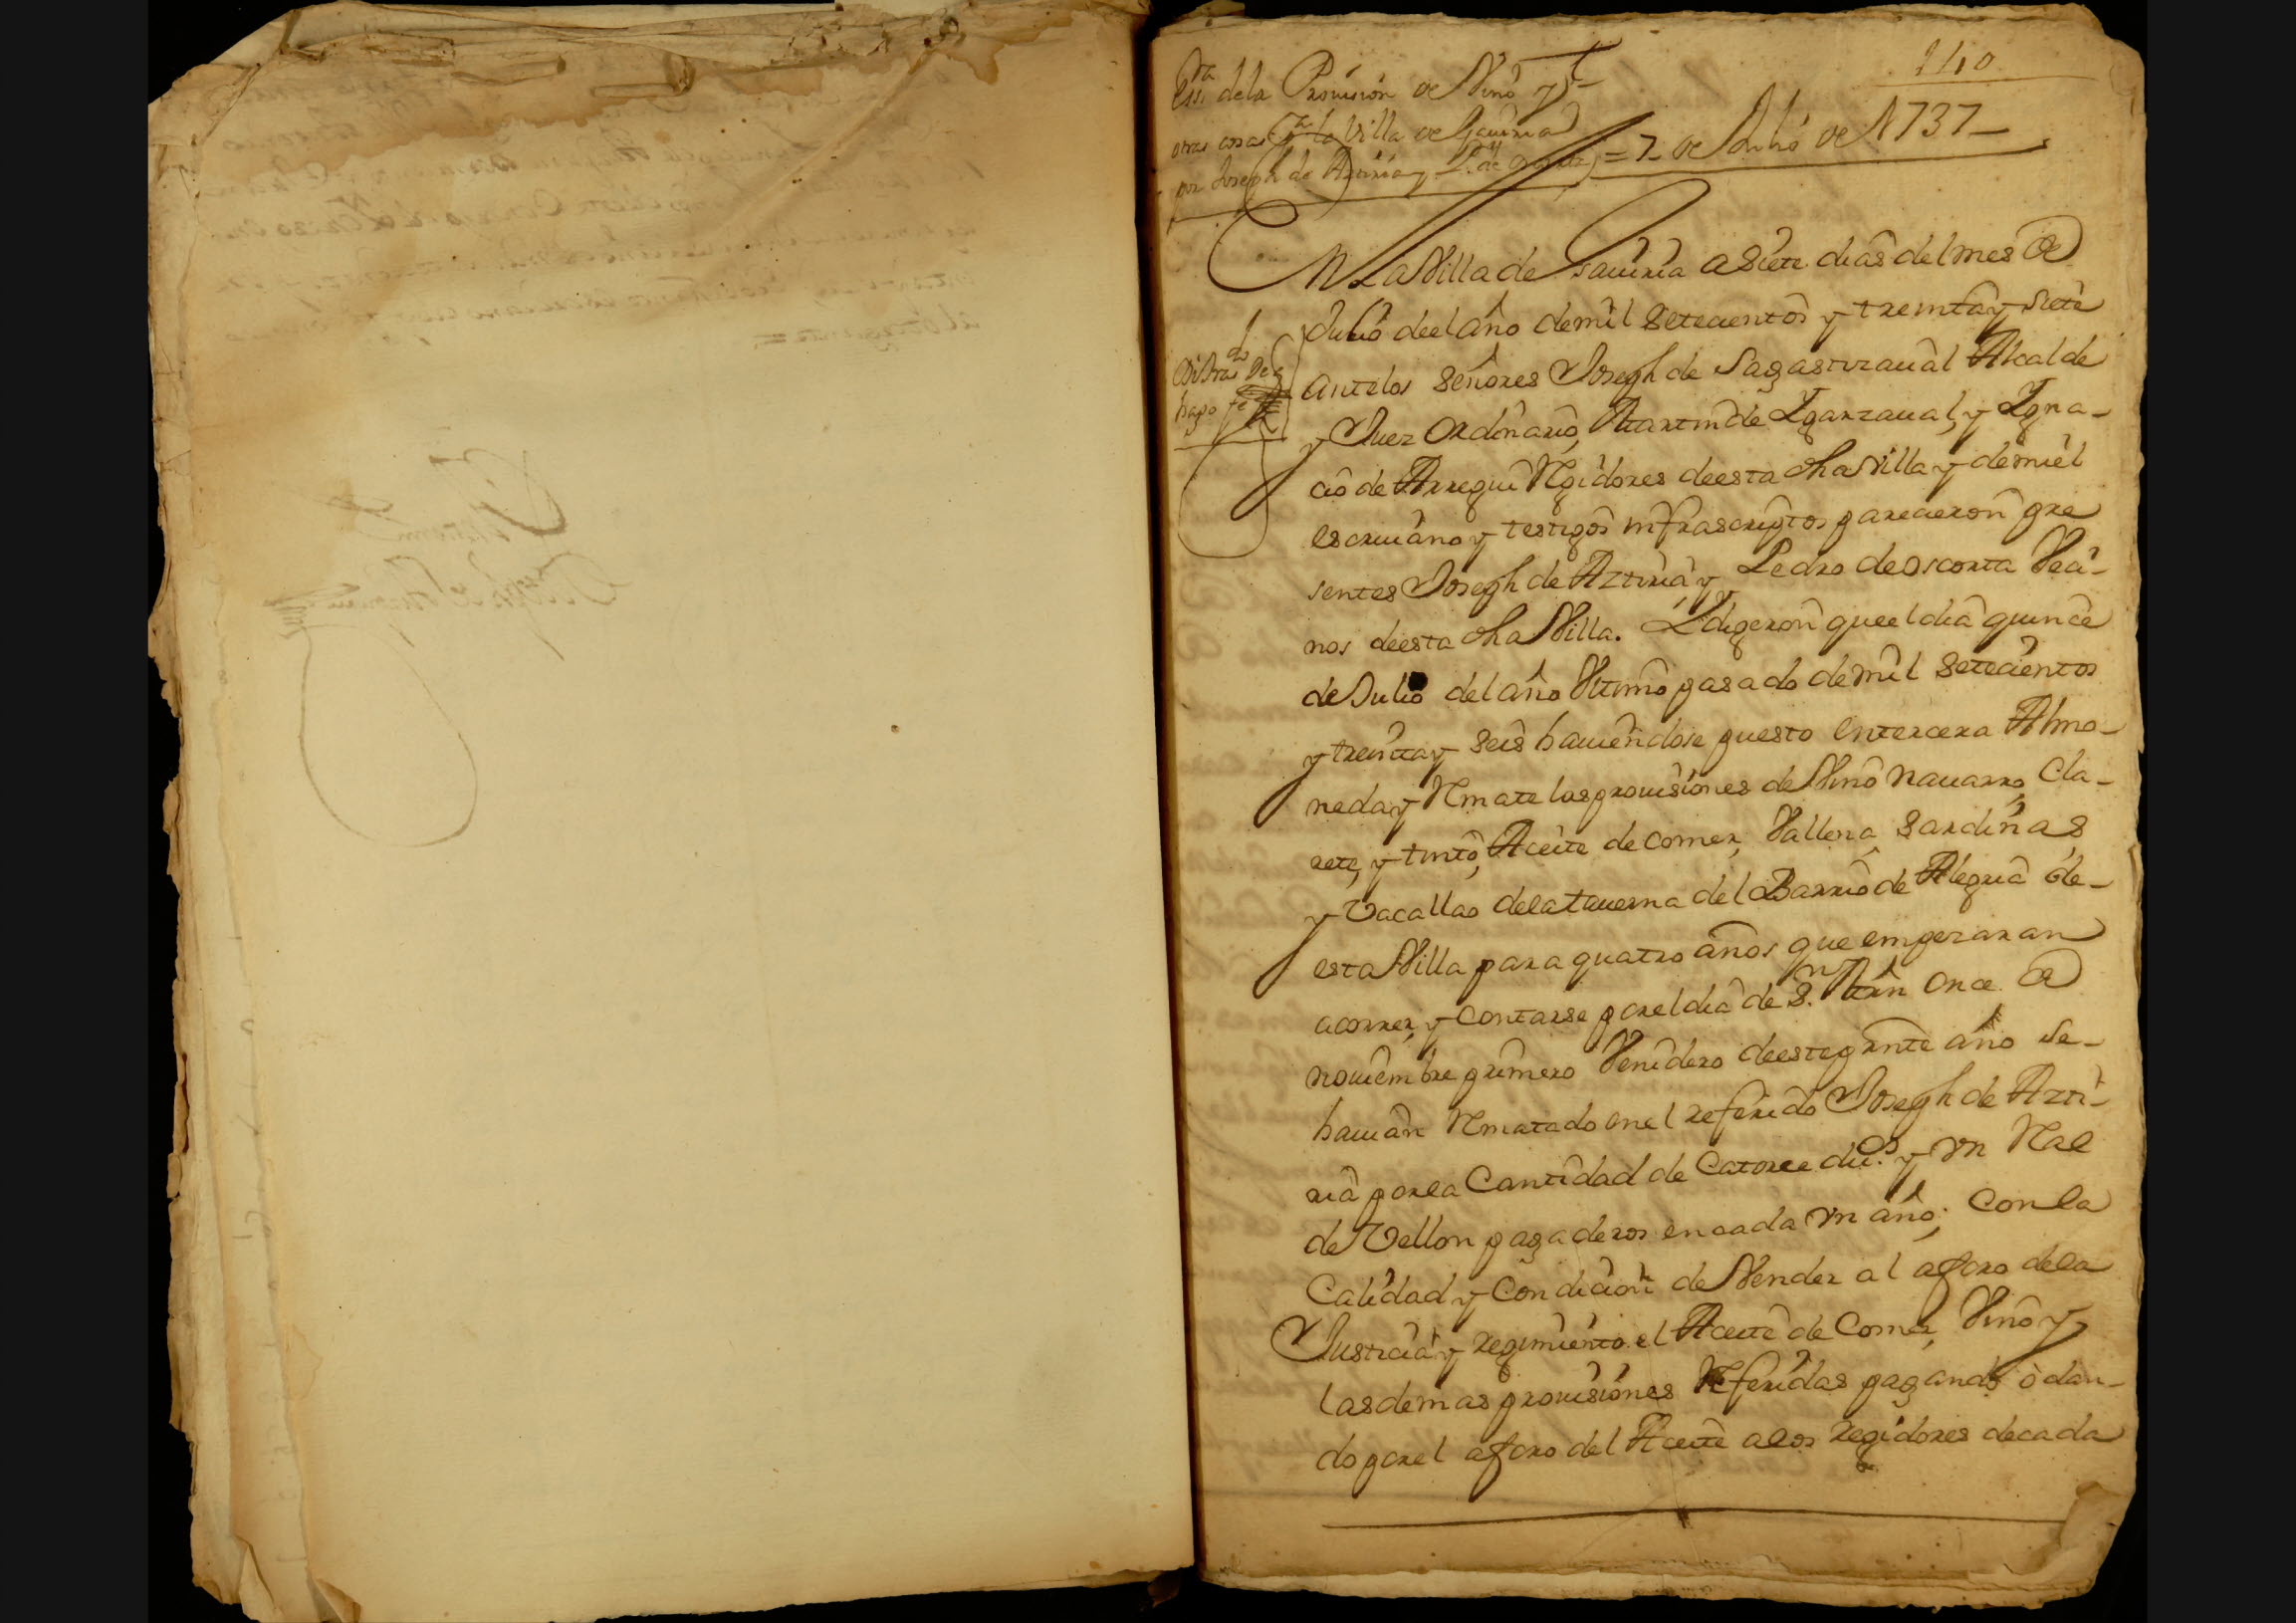 140
Essra dela Provision de Vino y
otras cosas pa la Villa de Gauiria
por Joseph de Aztiria y P.º de = 7 de Julio de 1737
En La Villa de Gauiria a Siete dias del mes de
Julio deel año de mil Setecientos y treinta y siete
ante los Señores Joseph de Sagastizaual Alcalde
y Juez Ordinario, Martin de Igarzaual, y Igna-
cio de Arregui Regidores de esta dha Villa y de mi el
escriuano y testigos infrascriptos parecieron pre
sentes Joseph de Aztiria y Pedro de Oscorta Veci-
nos de esta dha Villa. Y digeron que el dia quince
de Julio del año Vltimo pasado de mil Setecientos
y treinta y seis hauiendose puesto en tercera Almo-
neda y Rmate las prouisiones de Vino nauarro, Cla-
rete, y tinto, Aceite de comer, Vallena, Sardinas,
y Vacallao dela tauerna del Barrio de Alegria de-
esta Villa para quatro años que empezaran
a correr, y contarse por el dia de S.n Mrn Once de
nouiembre primero Venidero de este prnte año se-
hauian Rmatado en el referido Joseph de Azti-
ria por la Cantidad de Catorce du.s y vn Rael
de Vellon pagaderos en cada vn año; Con la
Calidad y Condicion de Vender al aforo dela
Justicia y regimiento el Aceite de Comer, Vino y
las demas prouisiones Referidas pagando ò dan-
do por el aforo del Aceite a los regidores de cada